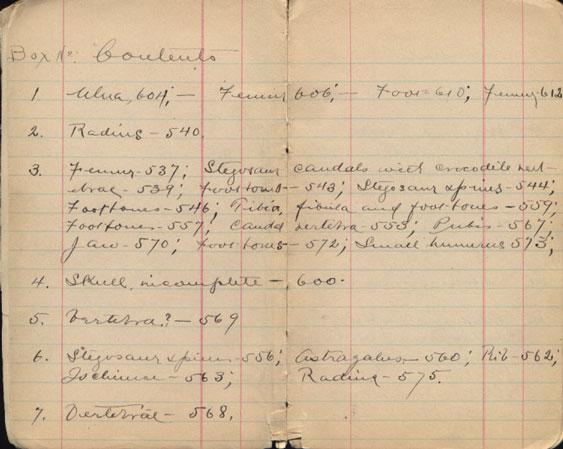 Box No. Contents
1 Ulna, 604; — Femur 606; — Foot - 610; Femur 612
2. Radius - 540
3. Femur - 537; Stegosaur caudals with crocodile vert-
ebrae - 539; Foot bones - 543; Stegosaur spines - 544;
Foot bones - 546; Tibia, fibula and foot bones - 559;
Foot bones - 557; Caudal vertebra - 555; Pubis - 567;
Jaw - 570; Foot bones - 572; Small humerus 573;
4. Skull, incomplete - 600.
5. Vertebra? - 569
6. Stegosaur spines - 556; Astragalus - 560; Rib - 562;
Ischium - 563; Radius - 575.
7. Vertebrae - 568.